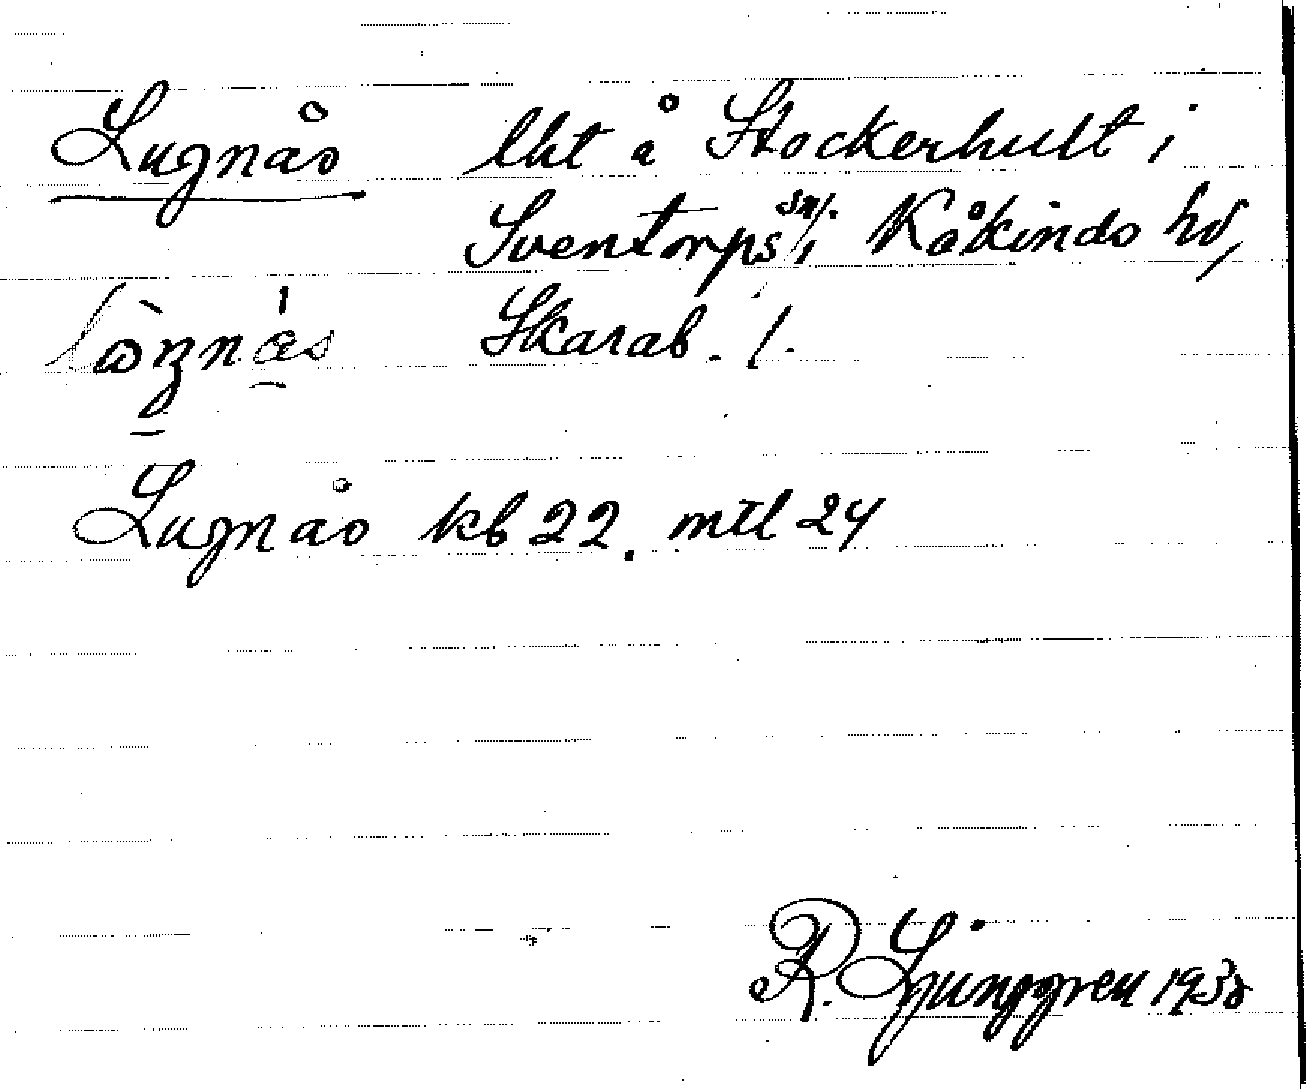 Lugnås lht å Stockerhult i
Sventorps sn i Kåkinds hd,
lòznás Skarab. l.
Lugnås kb 22. mtl 24
R. Ljunggren 1938